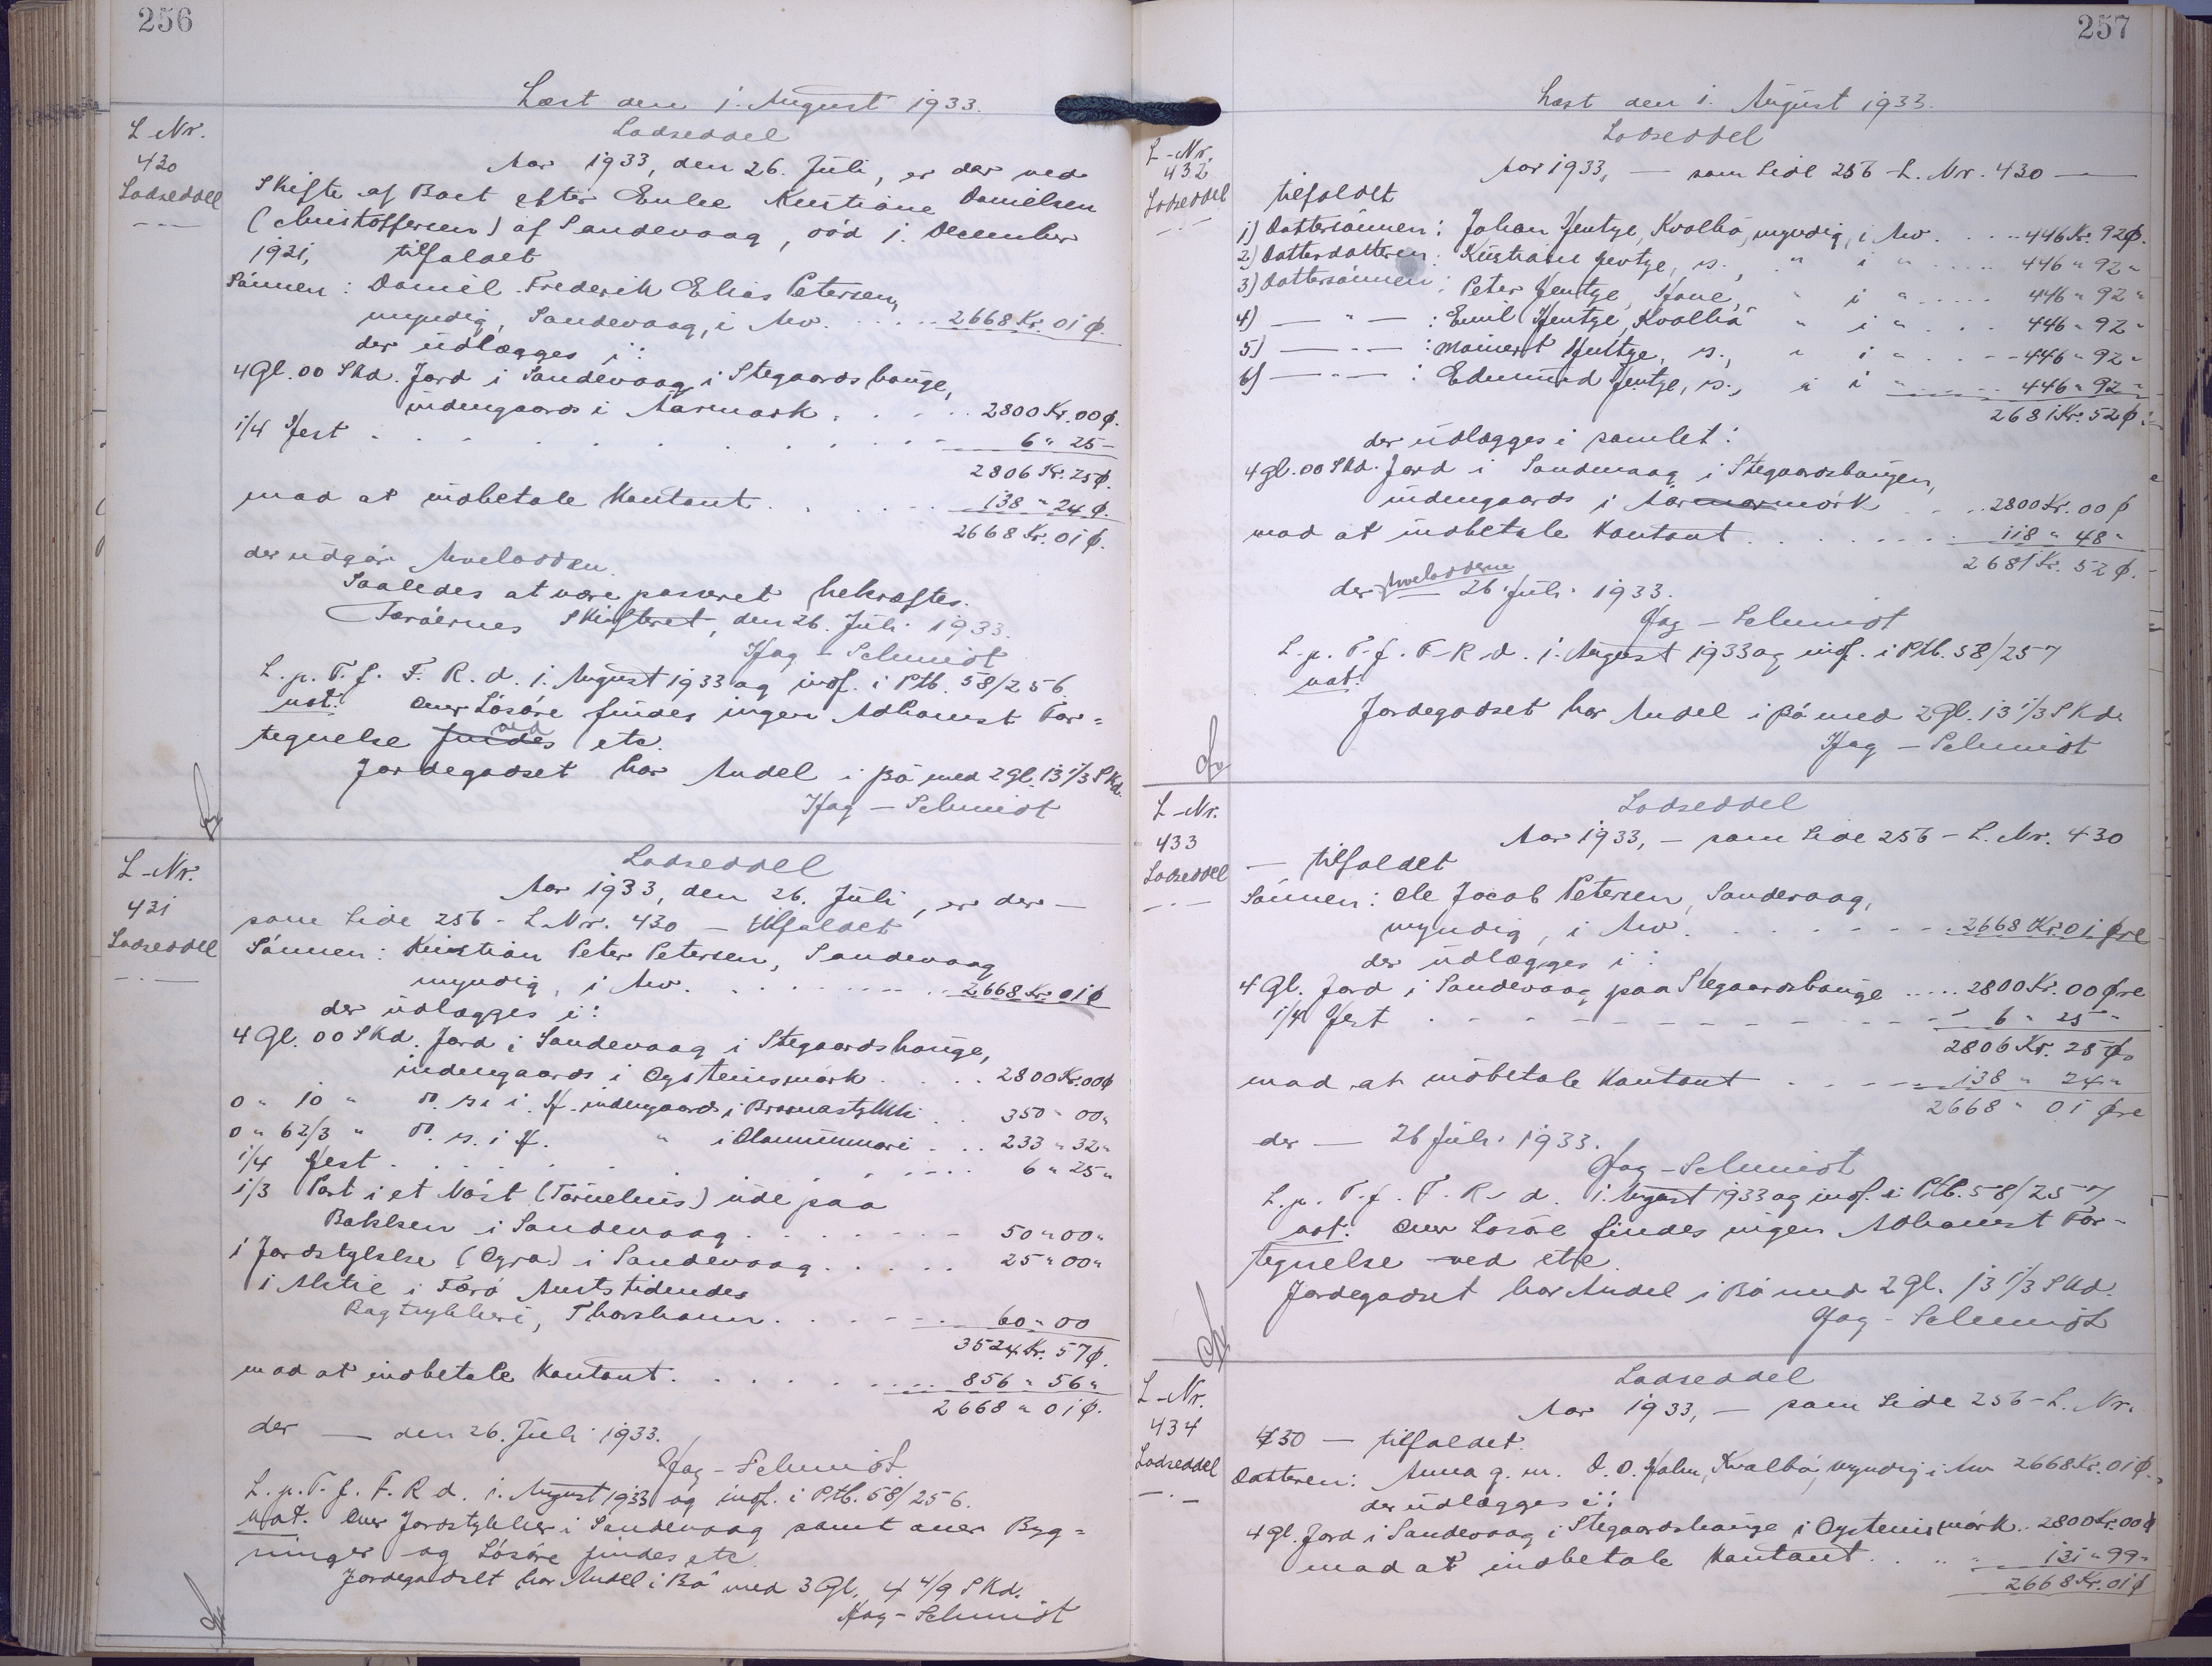 256
Læst den 1. August 1933.
L-Nr.
430
Lodseddel
Lodseddel
Aar 1933, den 26. Juli, er der ved
Skifte af Boet efter Enke Kristiane Danielsen
(Christoffersen) af Sandevaag, død 1. December
1921, tilfaldet
Sønnen: Daniel Frederik Elias Petersen,
myndig, Sandevaag, i Arv. . . . . 2668 Kr. 01 Ø.
der udlægges i:
4 Gl. 00 Skd. Jord i Sandevaag i Stegaardshauge,
indengaards i Aarmark . . . . . 2800 Kr. 00 Ø.
1/4 Hest . . . . . 6 " 25 -
2806 Kr. 25 Ø.
mod at indbetale Kontant . . . . . 138 " 24 Ø.
2668 Kr. 01 Ø.
der udgør Arvelodden.
Saaledes at være passeret bekræftes.
Færøernes Skifteret, den 26. Juli 1933.
Hag - Schmidt
L. p. T. f. F. R. d. 1. August 1933 og indf. i Ptb. 58/256.
not: Over Løsøre findes ingen Adkomst For=
tegnelse findes ved etc.
Jordegodset har Andel i Bø med 2 Gl. 13 1/3 Skd.
Hag - Schmidt
L-Nr.
431
Lodseddel
Lodseddel
Aar 1933, den 26. Juli, er der —
som Side 256 - L.Nr. 430 — tilfaldet
Sønnen: Kristian Peter Petersen, Sandevaag
myndig, i Arv. . . . . 2668 Kr. 01 Ø
der udlægges i:
4 Gl. 00 Skd. Jord i Sandevaag i Stegaardshauge,
indengaards i Oysteinsmørk . . . . . 2800 Kr. 00 Ø
0 " 10 " D. s. i. H. indengaards i . . 350 " 00 "
0 " 6 2/3 " D. s. i H. " i . . . 233 " 32 "
1/4 Hest . . . . . 6 " 25 "
1/3 Part i et Nøst (Tørvehus) ude paa
Bakken i Sandevaag . . . . . 50 " 00 "
1 Jordstykke (Oyra) i Sandevaag . . . . . 25 " 00 "
1 Aktie i Færø Amtstidendes
Bogtrykkeri, Thorshavn . . . . . 60 " 00
3524 Kr. 57 Ø.
mod at indbetale Kontant . . . . . 856 " 56 "
2668 " 01 Ø.
der — den 26. Juli 1933.
Hag - Schmidt.
L. p. T. f. F. R d. 1. August 1933 og indf. i Ptb. 58/256.
Not. Over Jordstykker i Sandevaag samt over Byg=
ninger og Løsøre findes etc.
Jordegodset har Andel i Bø med 3 Gl. 4 4/9 Skd.
Hag - Schmidt
257
Læst den 1. August 1933.
L-Nr.
432
Lodseddel
Lodseddel
Aar 1933, — som Side 256 - L. Nr. 430 —
tilfaldet
1) Dattersønnen: Johan Hentze, Kvalbø, myndig, i Arv. . . . 446 Kr. 92 Ø.
2) Datterdatteren: Kristiane Hentze, s., " i " . . . . 446 " 92 "
3) Dattersønnen: Peter Hentze, " i " . . . . 446 " 92 "
4) — " — : Emil Hentze, Kvalbø " i " . . . 446 " 92 "
5) — " — : Meinert Hentze, s., " i " . . . 446 " 92 "
6) — " — : Edmund Hentze, s., " i " . . . 446 " 92 "
2681 Kr. 52 Ø
der udlægges i samlet:
4 Gl. 00 Skd. Jord i Sandevaag i Stegaardshaugen,
indengaards i mørk . . . 2800 Kr. 00 Ø
mod at indbetale Kontant . . . . . 118 " 48 "
2681 Kr. 52 Ø.
der Arvelodderne — 26 Juli 1933.
Hag - Schmidt
L. p. T. f. F. R. d. 1. August 1933 og indf. i Ptb. 58/257
not:
Jordegodset har Andel i Bø med 2 Gl. 13 1/3 Skd.
Hag - Schmidt
L-Nr.
433
Lodseddel
Lodseddel
Aar 1933, — som Side 256 - L. Nr. 430
— tilfaldet
Sønnen: Ole Jacob Petersen, Sandevaag,
myndig, i Arv. . . . . 2668 Kr. 01 Øre
der udlægges i:
4 Gl. Jord i Sandevaag paa Stegaardshauge . . . . . 2800 Kr. 00 Øre
1/4 Hest . . . . . 6 " 25 "
2806 Kr. 25 Ø.
mod at indbetale Kontant . . . . . 138 " 24 "
2668 " 01 Øre
der — 26 Juli 1933.
Hag - Schmidt
L. p. T. f. F. R. d. 1. August 1933 og indf. i Ptb. 58/257
not: Over Løsøre findes ingen Adkomst For-
tegnelse ved etc.
Jordegodset har Andel i Bø med 2 Gl. 13 1/3 Skd.
Hag - Schmidt
L-Nr.
434
Lodseddel
Lodseddel
Aar 1933, — som Side 256 - L. Nr.
430 — tilfaldet.
Datteren: Anna g. m. Kvalbø, myndig i Arv 2668 Kr. 01 Ø.
der udlægges i:
4 Gl. Jord i Sandevaag i Stegaardshauge i Oysteinsmørk . . 2800 Kr. 00 Ø
mod at indbetale Kontant . . . . . 131 " 99 "
2668 Kr. 01 Ø